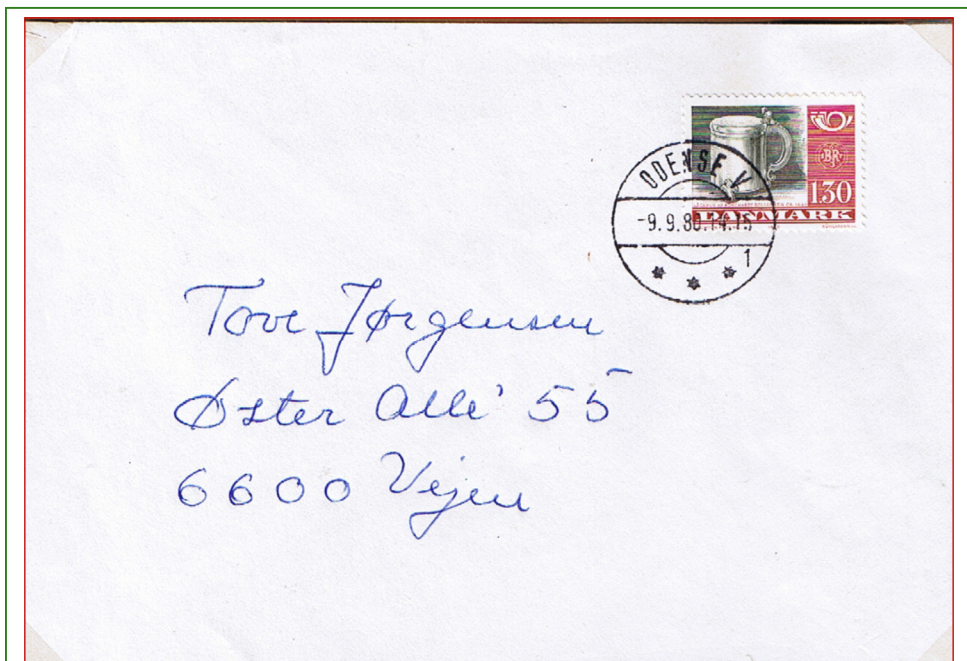 ODENSE V
-9.9.80.14.15
1
130
DANMARK
Tove Jørgensen
Øster Allé 55
6600 Vejen